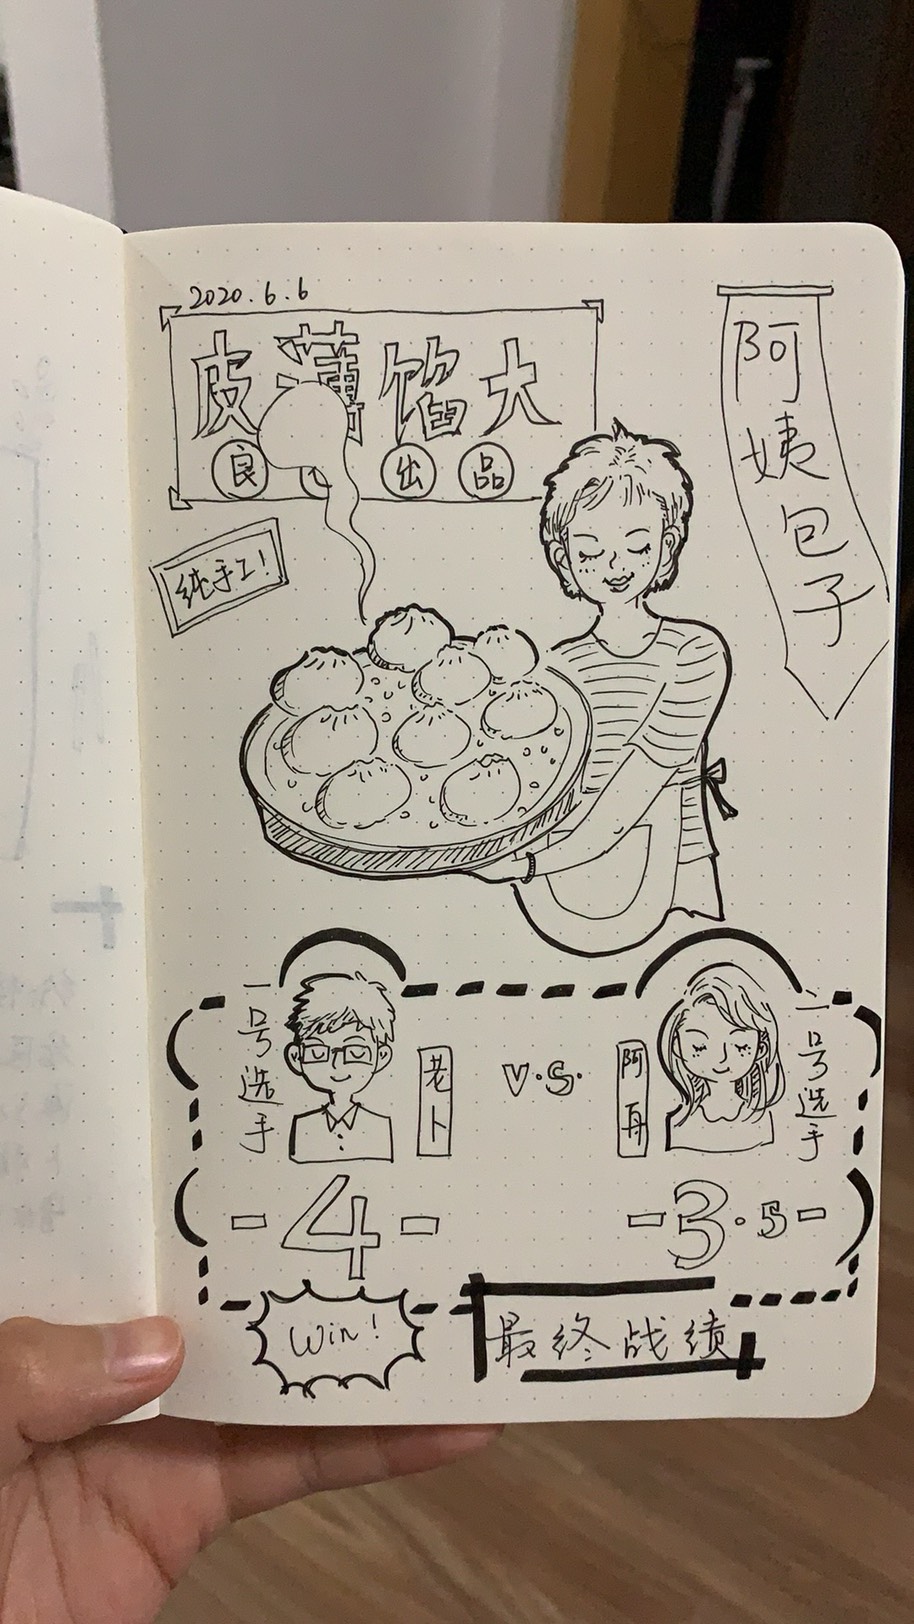 2020.6.6
皮薄馅大
良 出 品
纯手工!
阿姨包子
一号选手
老卜
v.s.
阿冉
二号选手
-4-
-3.5-
Win!
最终战绩